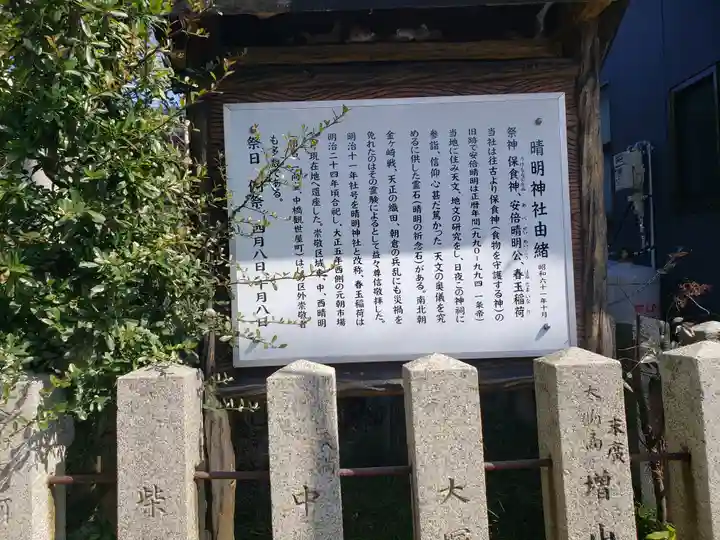 晴明神社由緒 昭和六十一年十月
祭神 保食神、安倍晴明公、春玉稲荷
当社は往古より保食神(食物を守護する神)の
旧跡で安倍晴明は正暦年間(九九〇~九九四 一条帝)
当地に住み天文、地文の研究をし、日夜この神祠に
参詣、信仰心甚だ篤かった 天文の奥儀を究
めるに供した霊石(晴明の祈念石)がある。南北朝
金ヶ崎戦、天正の織田、朝倉の兵乱にも災禍を
免れたのはその霊験によるとして益々尊信敬拝した。
明治十一年社号を晴明神社と改称、春玉稲荷は
明治二十四年頃合祀し、大正五年西側の元朝市場
現在地へ還座した。崇敬区域東、中、西晴明
中橋観世屋町)は 区外崇敬者
も多数である。
祭日 例祭 四月八日、十月八日
柴
中
大
大崎
末廣
増山